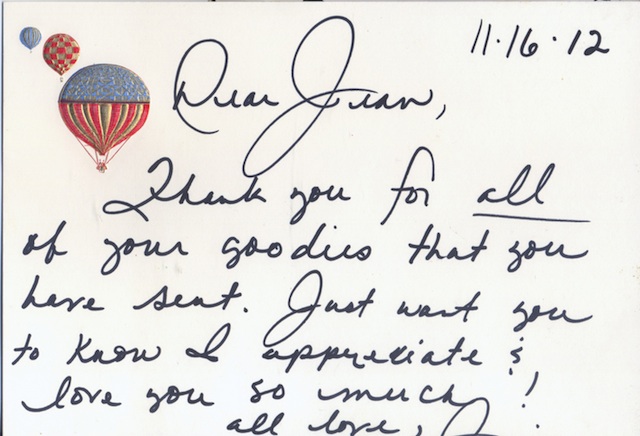 11·16·12
Dear Jean,
Thank you for all
of your goodies that you
have sent. Just want you
to know I appreciate &
love you so much!
all love,